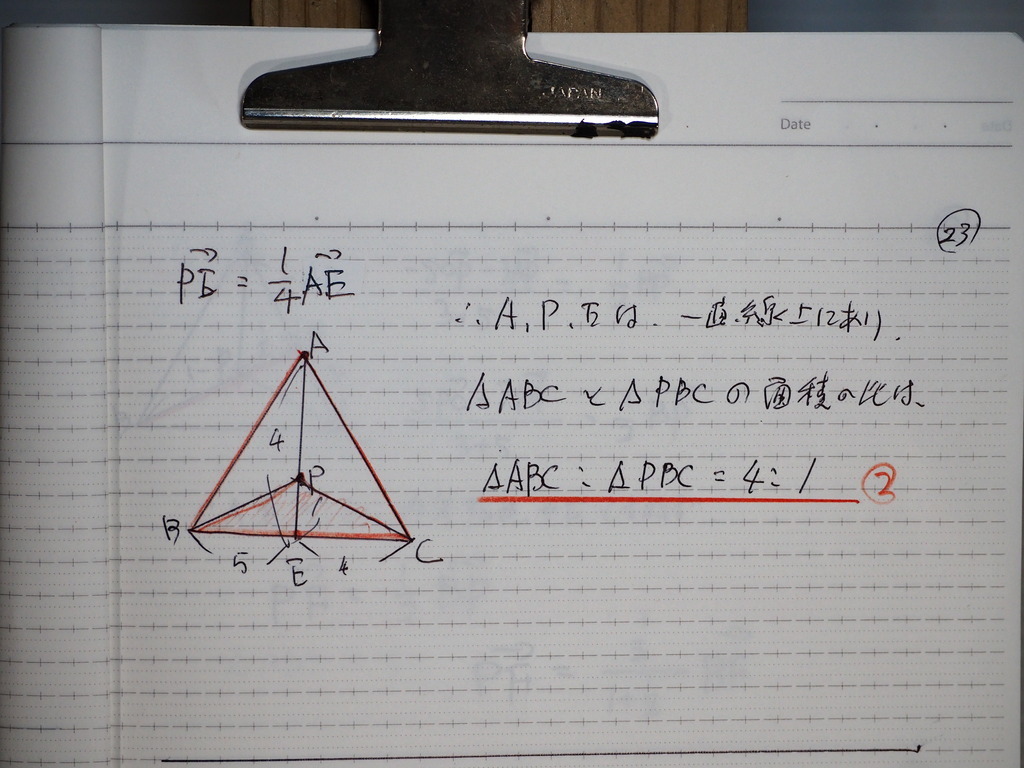 JAPAN
Date
㉓
PE = 1/4 AE
∴ A, P, E は、一直線上にあり、
△ABC と △PBC の面積の比は、
△ABC : △PBC = 4 : 1 ②
A
4
P
1
B
C
5
E
4